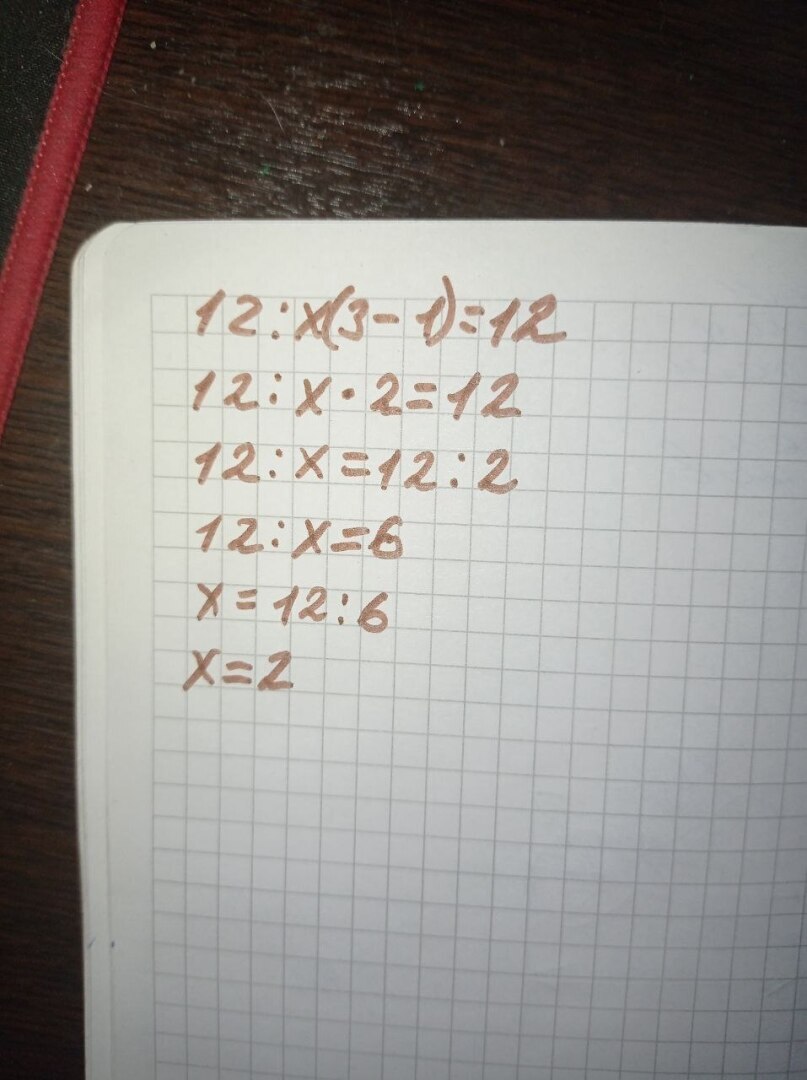 12:x(3-1)=12
12:x·2=12
12:x=12:2
12:x=6
x=12:6
x=2